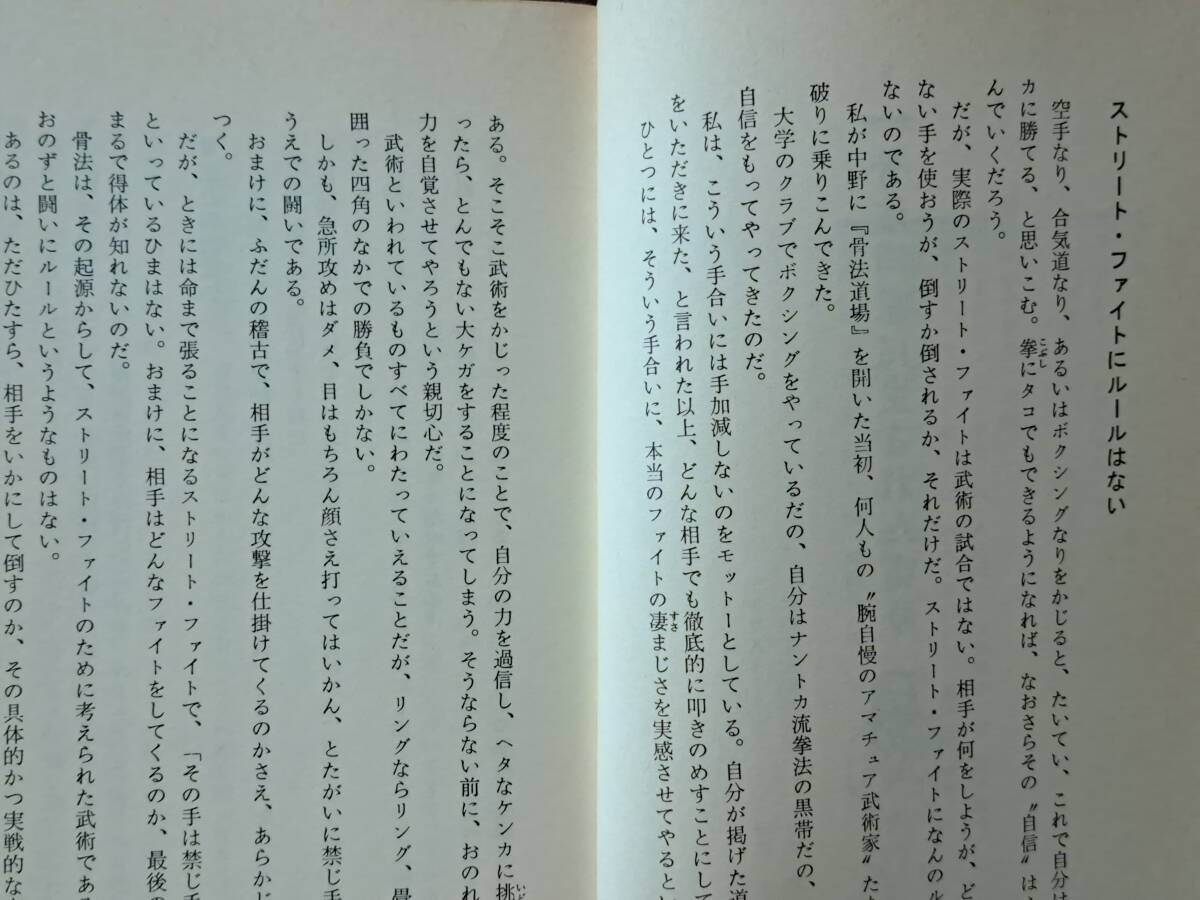 ストリート・ファイトにルールはない
空手なり、合気道なり、あるいはボクシングなりをかじると、たいてい、これで自分は
カに勝てる、と思いこむ。拳にタコでもできるようになれば、なおさらその〝自信〟は
んでいくだろう。
だが、実際のストリート・ファイトは武術の試合ではない。相手が何をしようが、ど
ない手を使おうが、倒すか倒されるか、それだけだ。ストリート・ファイトになんのル
ないのである。
私が中野に『骨法道場』を開いた当初、何人もの〝腕自慢のアマチュア武術家〟た
破りに乗りこんできた。
大学のクラブでボクシングをやっているだの、自分はナントカ流拳法の黒帯だの、
自信をもってやってきたのだ。
私は、こういう手合いには手加減しないのをモットーとしている。自分が掲げた道
をいただきに来た、と言われた以上、どんな相手でも徹底的に叩きのめすことにして
ひとつには、そういう手合いに、本当のファイトの凄まじさを実感させてやると
ある。そこそこ武術をかじった程度のことで、自分の力を過信し、ヘタなケンカに挑
ったら、とんでもない大ケガをすることになってしまう。そうならない前に、おのれ
力を自覚させてやろうという親切心だ。
武術といわれているものすべてにわたっていえることだが、リングならリング、畳
囲った四角のなかでの勝負でしかない。
しかも、急所攻めはダメ、目はもちろん顔さえ打ってはいかん、とたがいに禁じ手
うえでの闘いである。
おまけに、ふだんの稽古で、相手がどんな攻撃を仕掛けてくるのかさえ、あらかじ
つく。
だが、ときには命まで張ることになるストリート・ファイトで、「その手は禁じ手
といっているひまはない。おまけに、相手はどんなファイトをしてくるのか、最後の
まるで得体が知れないのだ。
骨法は、その起源からして、ストリート・ファイトのために考えられた武術である
おのずと闘いにルールというようなものはない。
あるのは、ただひたすら、相手をいかにして倒すのか、その具体的かつ実戦的な